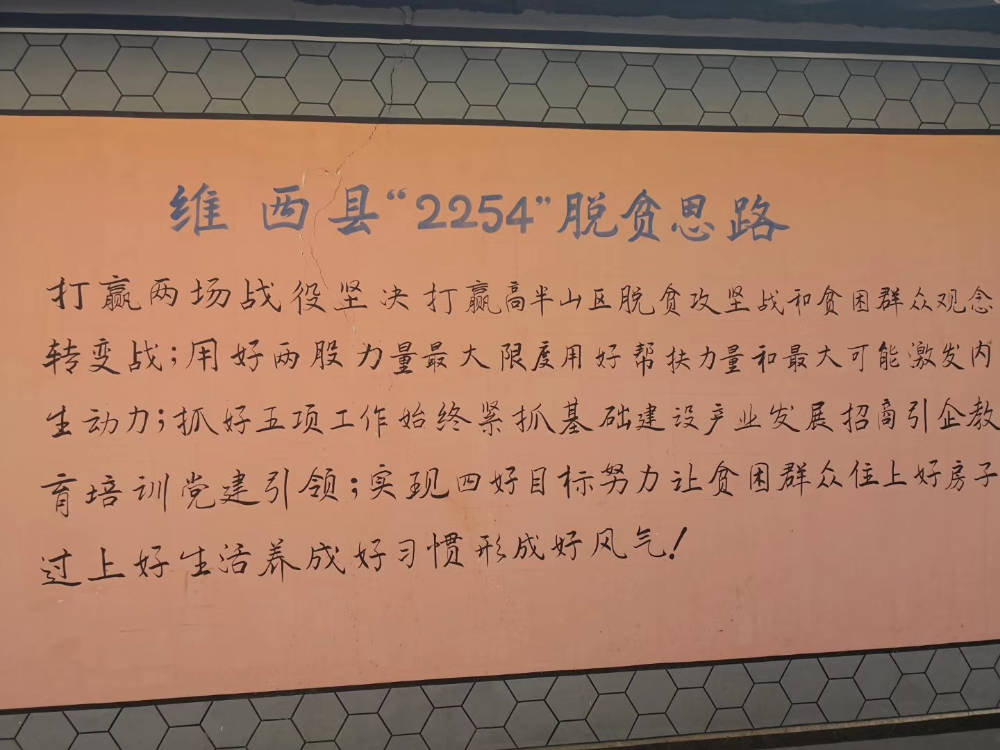 维西县“2254”脱贫思路
打赢两场战役坚决打赢高半山区脱贫攻坚战和贫困群众观念
转变战;用好两股力量最大限度用好帮扶力量和最大可能激发内
生动力;抓好五项工作始终紧抓基础建设产业发展招商引企教
育培训党建引领;实现四好目标努力让贫困群众住上好房子
过上好生活养成好习惯形成好风气!